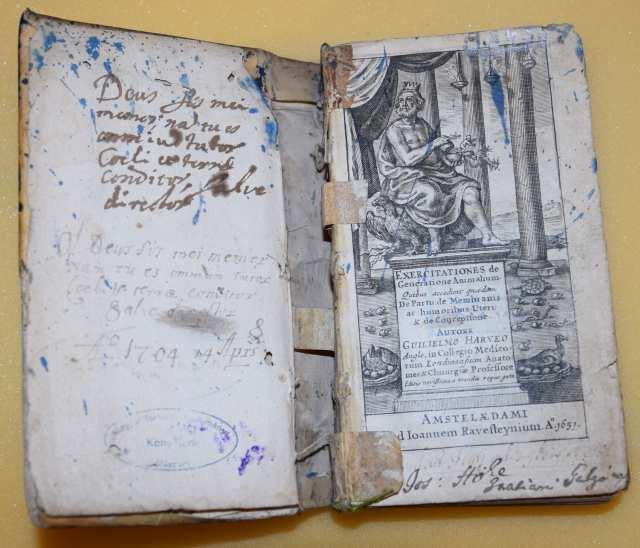 Deus sis mei
memor nã tu es
omniu tutor
Coeli et terræ
conditor, salve
director
Deus sit mei memor
nam tu es omnium tutor
Coeli et terræ conditor
Salve
Aº 1704 14 Apris
EXERCITATIONES de
Generatione Animalium.
Quibus accedunt quædam
De Partu: de Membranis
ac humoribus Uteri:
& de Conceptione.
AUTORE
GUILIELMO HARVEO
Anglo, in Collegio Medico-
rum Londinensium Anato-
mes & Chirurgiæ Professore
Editio novissima a mendis repurgata
AMSTELÆDAMI
d Ioannem Ravesteynium. Aº. 1651.
Jos: